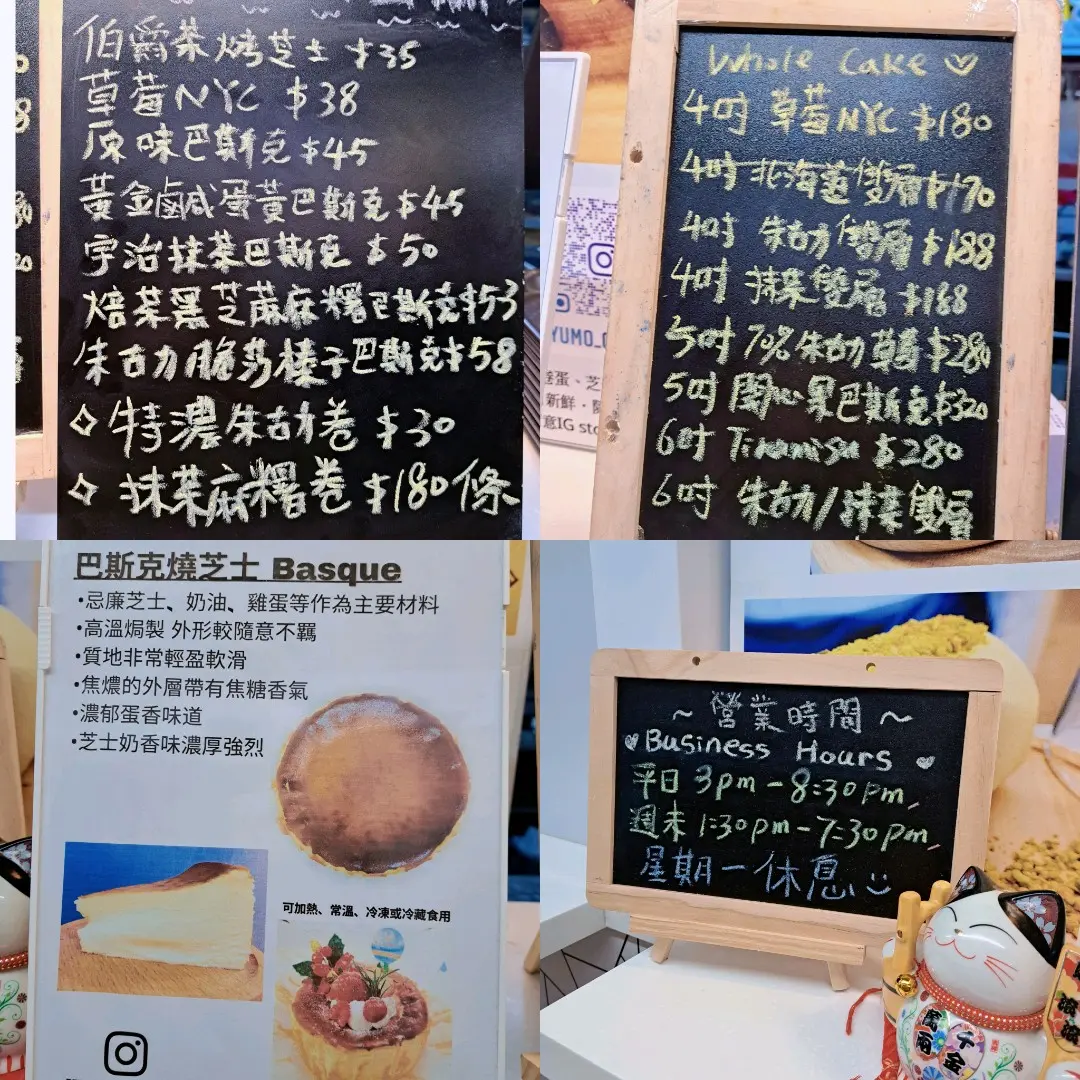 伯爵茶烤芝士 $35
草莓NYC $38
原味巴斯克 $45
黃金鹹蛋黃巴斯克 $45
宇治抹茶巴斯克 $50
焙茶黑芝蔴麻糬巴斯克 $53
朱古力脆莎榛子巴斯克 $58
特濃朱古力卷 $30
抹茶麻糬卷 $180條
Whole Cake
4吋 草莓NYC $180
4吋 北海道雙層 $170
4吋 朱古力雙層 $188
4吋 抹茶雙層 $168
5吋 70% 朱古力草莓 $280
5吋 開心果巴斯克 $320
6吋 Tiramisu $280
6吋 朱古力/抹茶雙層
YUMO_
新鮮
意IG sto
巴斯克燒芝士 Basque
•忌廉芝士、奶油、雞蛋等作為主要材料
•高溫焗製 外形較隨意不羈
•質地非常輕盈軟滑
•焦燶的外層帶有焦糖香氣
•濃郁蛋香味道
•芝士奶香味濃厚強烈
可加熱、常溫、冷凍或冷藏食用
~ 營業時間 ~
Business Hours
平日 3pm - 8:30pm
週末 1:30pm - 7:30pm
星期一休息
千金